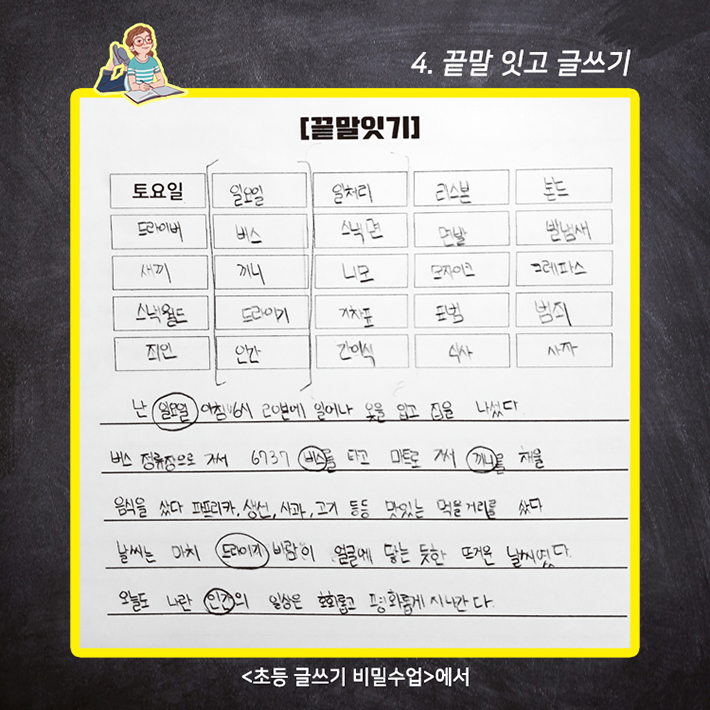 4. 끝말 잇고 글쓰기
[끝말잇기]
토요일 일요일 일처리 리스본 본드
드라이버 버스 스낵면 면발 발냄새
새끼 끼니 니모 모자이크 크레파스
스낵월드 드라이기 기차표 표범 범죄
죄인 인간 간이식 식사 사자
난 일요일 아침 6시 20분에 일어나 옷을 입고 집을 나섰다.
버스 정류장으로 가서 6737 버스를 타고 마트로 가서 끼니를 채울
음식을 샀다 파프리카, 생선, 사과, 고기 등등 맛있는 먹을거리를 샀다
날씨는 마치 드라이기 바람이 얼굴에 닿는 듯한 뜨거운 날씨였다.
오늘도 나란 인간의 일상은 호화롭고 평화롭게 지나간다.
<초등 글쓰기 비밀수업>에서